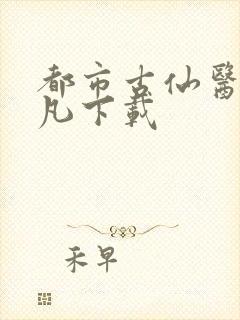 都市古仙醫
凡下載
禾早